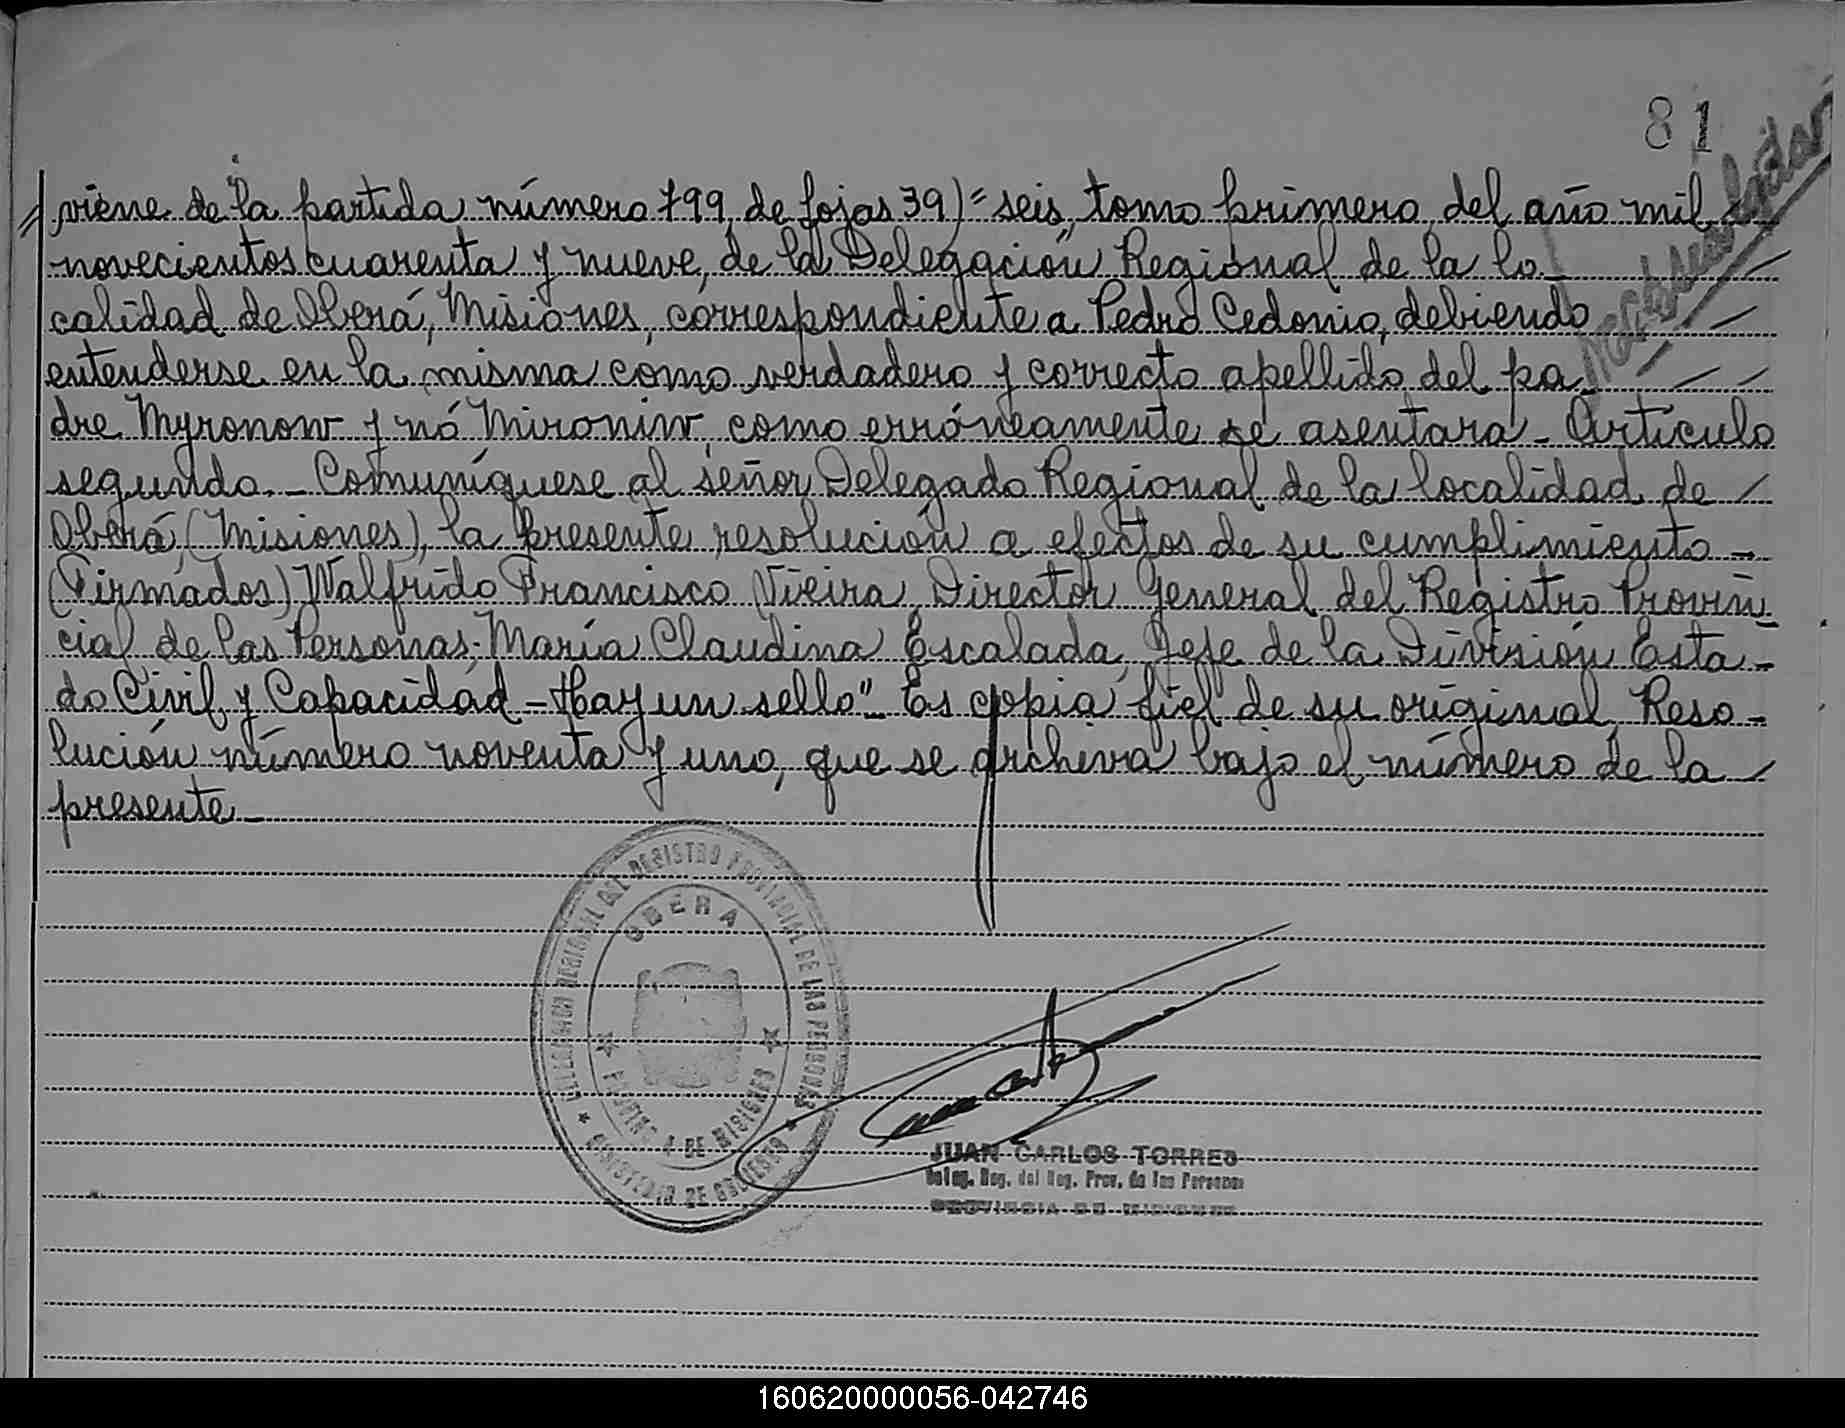 81
Macassendadar
// viene de la partida número 799, de fojas 39)= seis, tomo primero, del año mil
novecientos cuarenta y nueve, de la Delegación Regional de la lo_
calidad de Oberá, Misiones, correspondiente a Pedro Cedonio, debiendo
entenderse en la misma como verdadero y correcto apellido del pa_
dre Myronow y nó Mironiw, como erróneamente se asentara_ Artículo
segundo._ Comuníquese al señor Delegado Regional de la localidad de
Oberá, (Misiones), la presente resolución a efectos de su cumplimiento_
(Firmados) Walfrido Francisco Vieira, Director General del Registro Provin_
cial de las Personas; María Claudina Escalada, Jefe de la División Esta_
do Civil y Capacidad_ Hay un sello"_ Es copia fiel de su original, Reso_
lución número noventa y uno, que se archiva bajo el número de la
presente_
DELEGACION REGIONAL DEL REGISTRO PROVINCIAL DE LAS PERSONAS
OBERA
PROVINCIA DE MISIONES
MINISTERIO DE GOBIERNO
JUAN CARLOS TORRES
Deleg. Reg. del Reg. Prov. de las Personas
PROVINCIA DE MISIONES
160620000056-042746